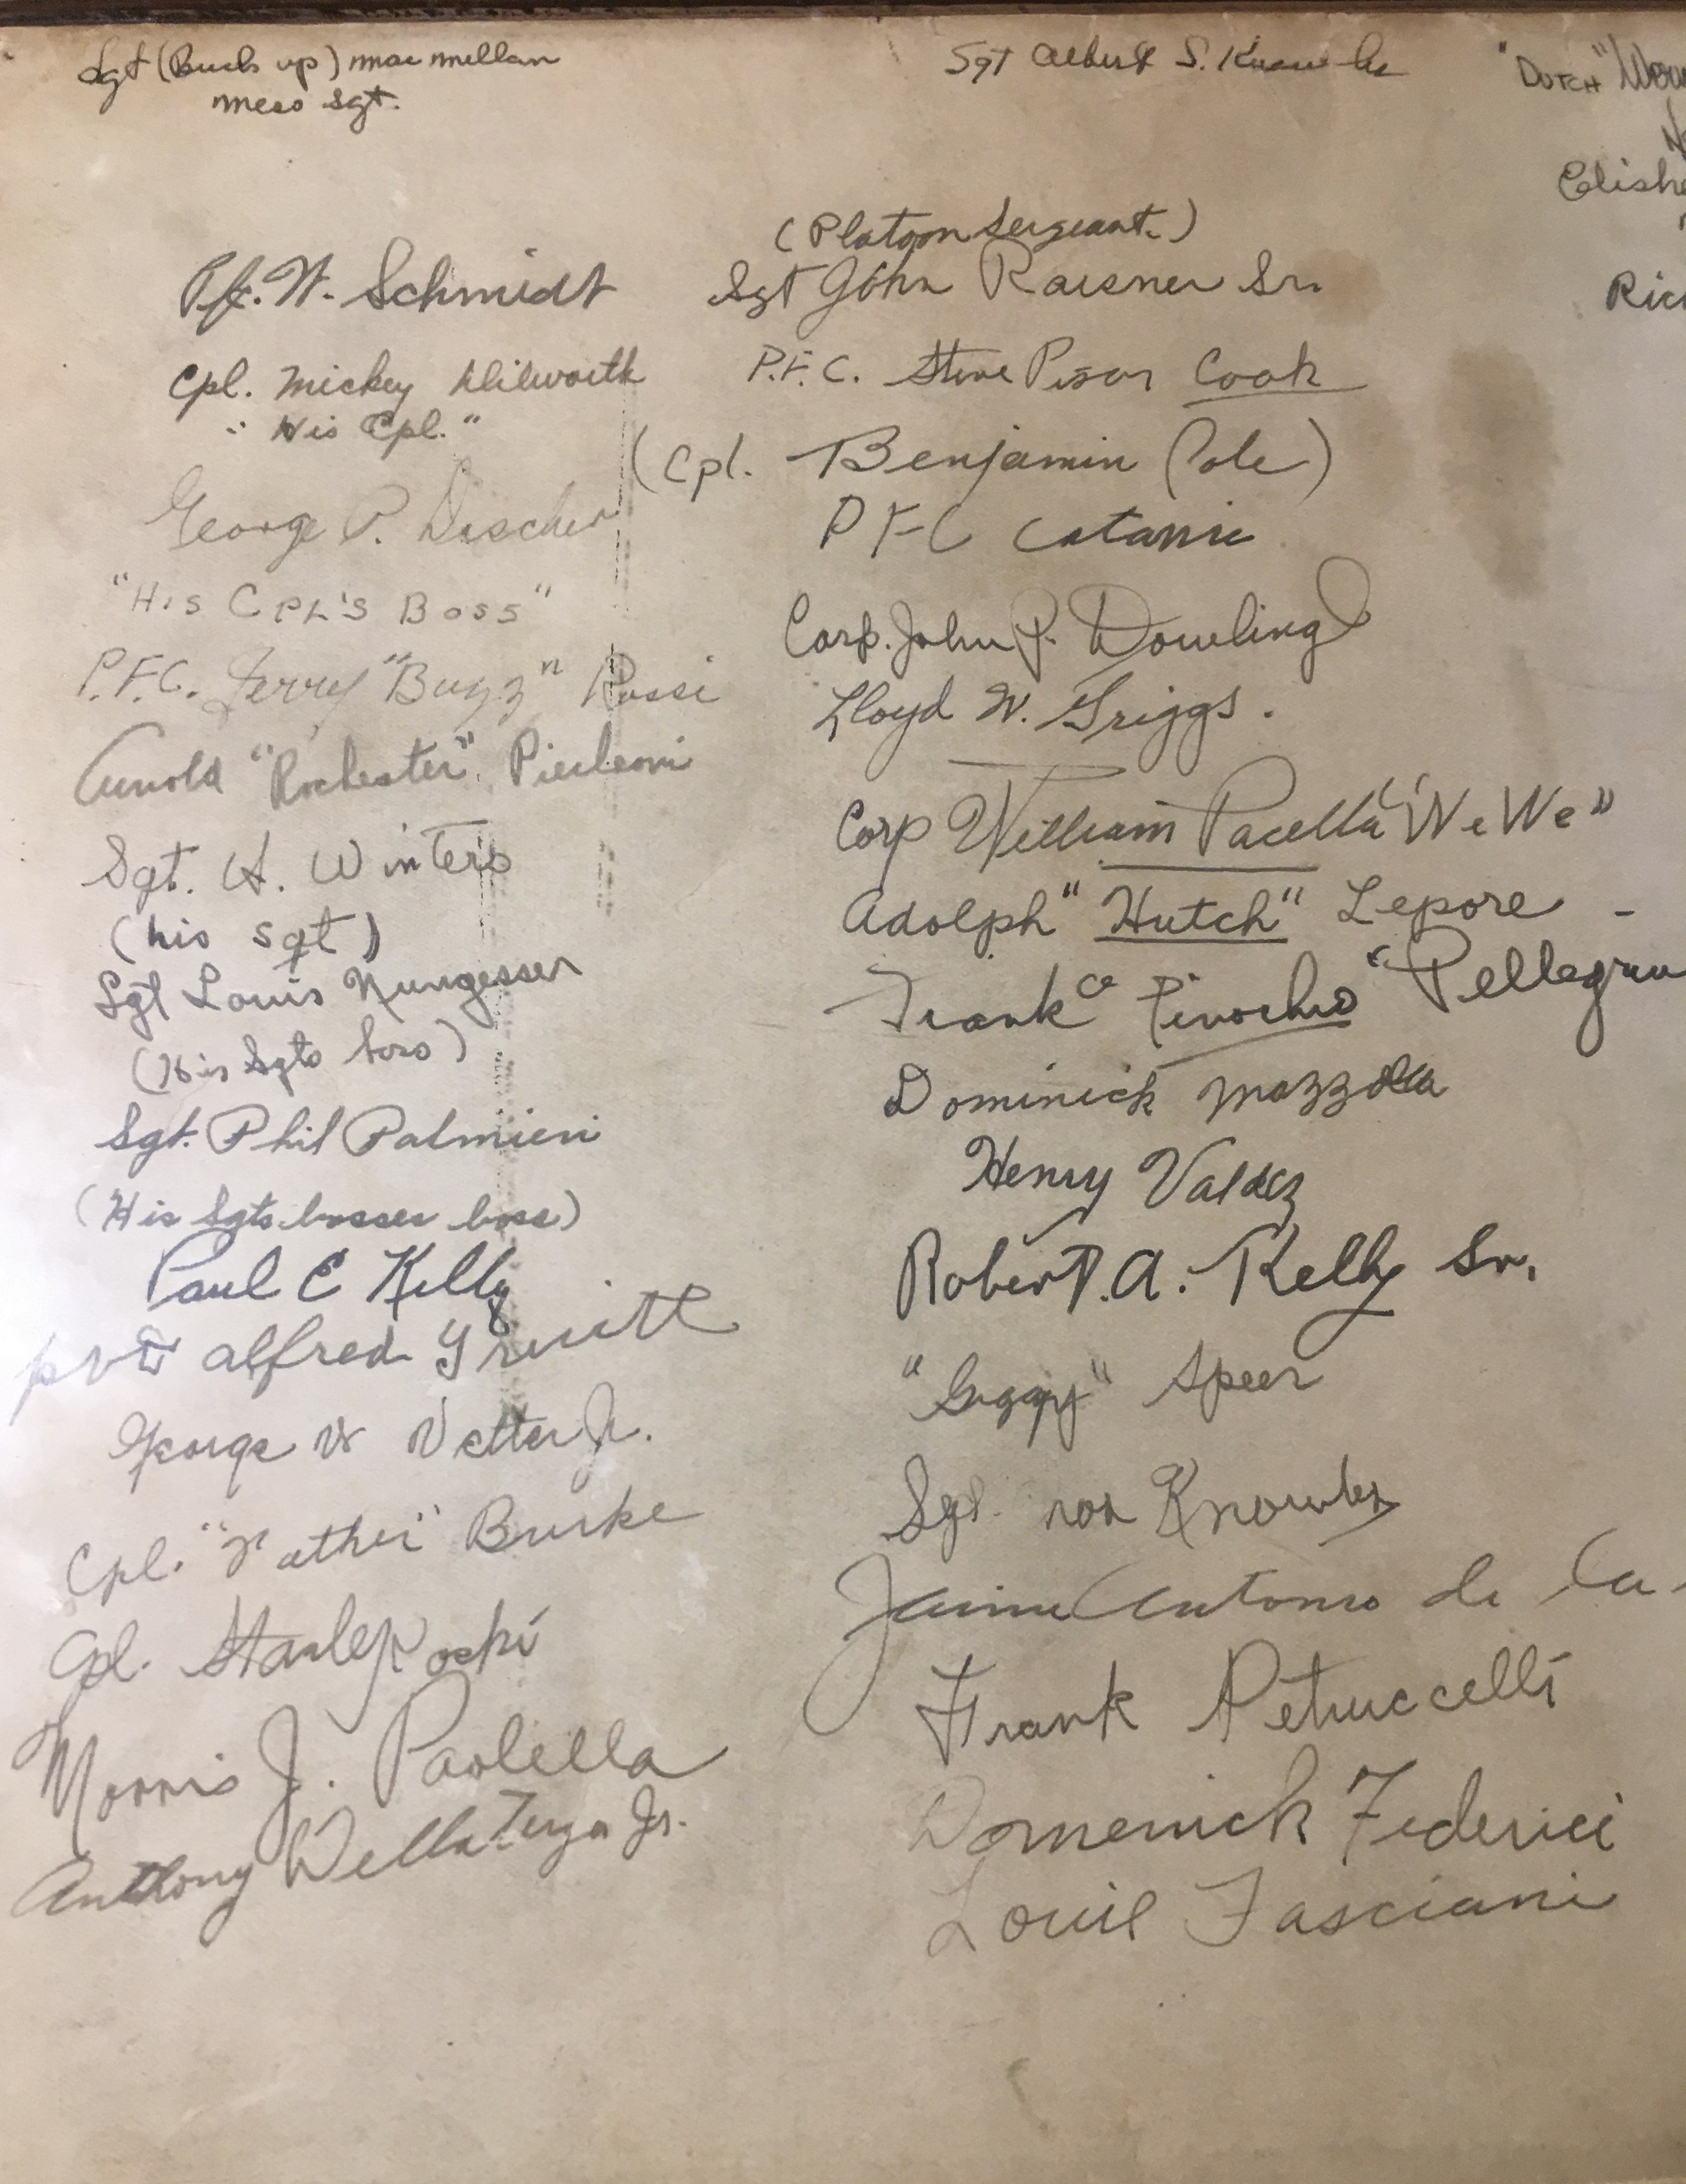 Sgt (Buck up) mac millan
mess sgt.
Pfc. W. Schmidt
Cpl. Mickey Dilworth
"His Cpl."
George P. Discher
"HIS CPL'S BOSS"
P.F.C. Jerry "Buzz" Rossi
Arnold "Rochester" Pierleoni
Sgt. H. Winters
(his sgt)
Sgt Louis Nungesser
(His Sgts boss)
Sgt. Phil Palmieri
(His Sgts. bosses boss)
Paul E Kelly
pvt alfred
George W Vetter Jr.
Cpl. "Father" Burke
Cpl. Stanley
Morris J. Paolella
Anthony DellaTerza Jr.
Sgt Albert S.
(Platoon Sergeant.)
Sgt John Raisner Sr.
P.F.C. Steve Pisar Cook
(Cpl. Benjamin Cole)
PFC Catania
Corp. John P. Dowling
Lloyd W. Griggs.
Corp William Pacella "We We"
Adolph "Hutch" Lepore -
Frank "Pinochio"
Dominick Mazzella
Henry Valdez
Robert A. Kelly Sr.
Speer
Sgt. Knowles
Jaime Antonio de
Frank Petruccelli
Domenick Federici
Louis Fasciani
"DUTCH"